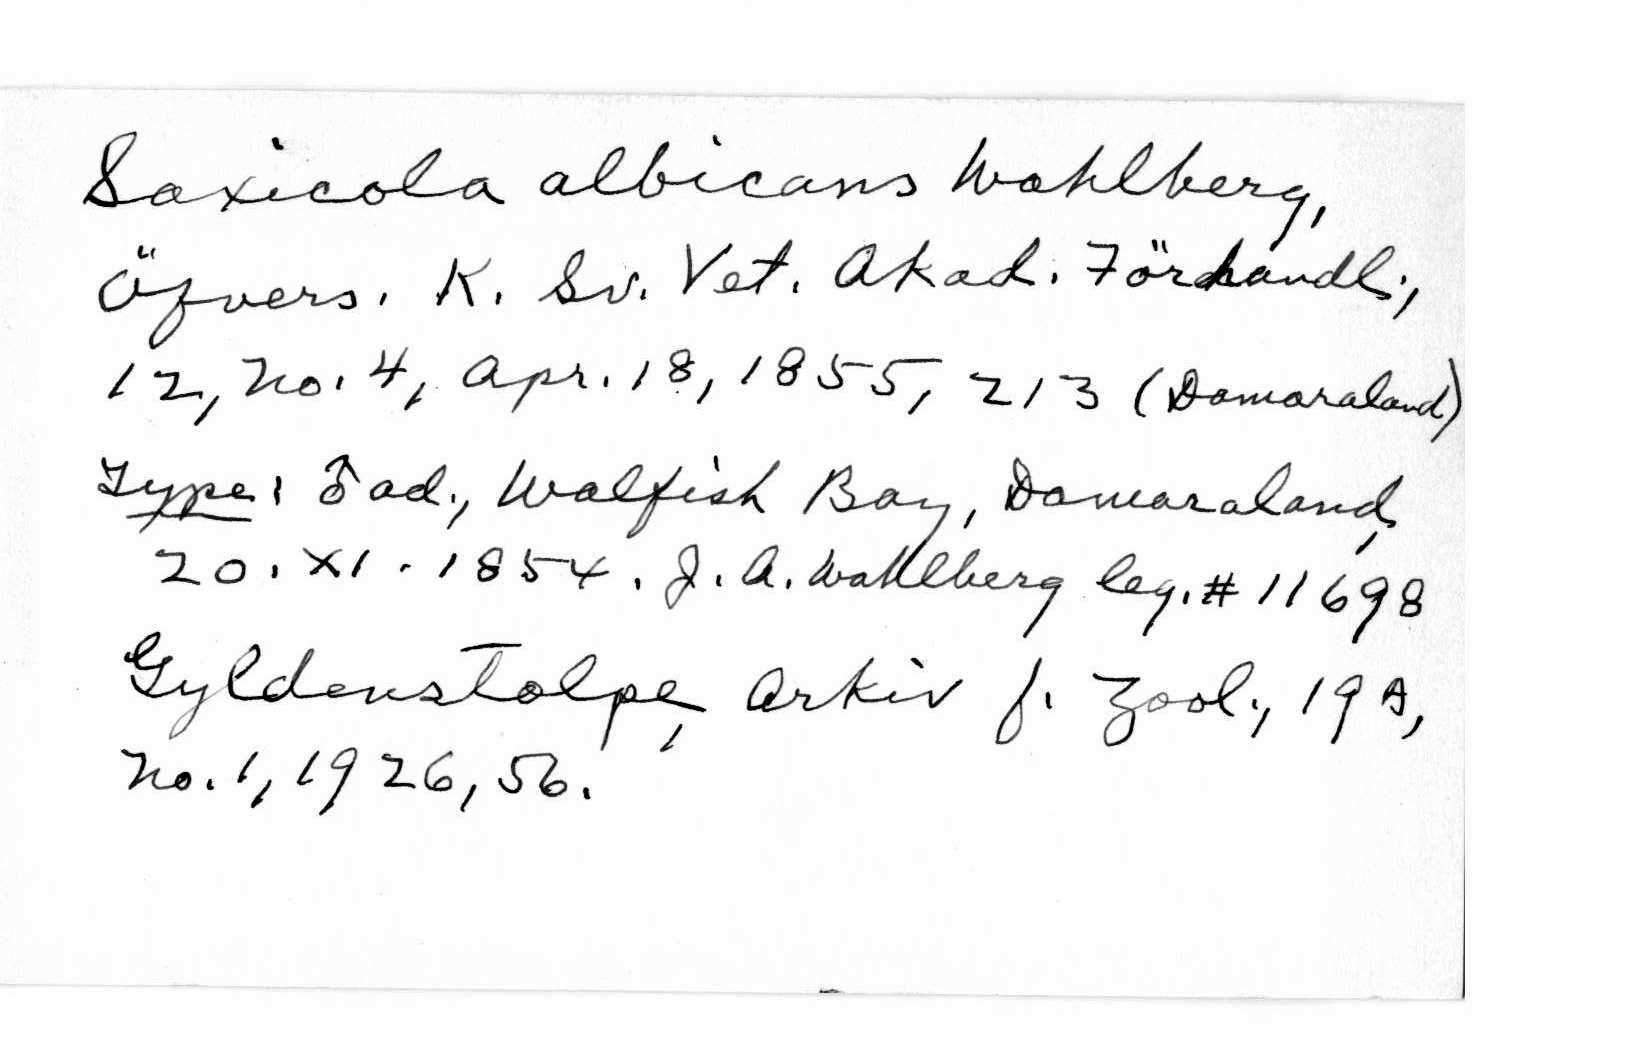 Saxicola albicans Wahlberg,
Öfvers. K. Sv. Vet. Akad. Förhandl.,
12, no. 4, Apr. 18, 1855, 213 (Damaraland)
Type: ♂ ad., Walfish Bay, Damaraland,
20. XI. 1854. J. A. Wahlberg leg. # 11698
Gyldenstolpe, Arkiv f. Zool., 19 A,
no. 1, 1926, 56.